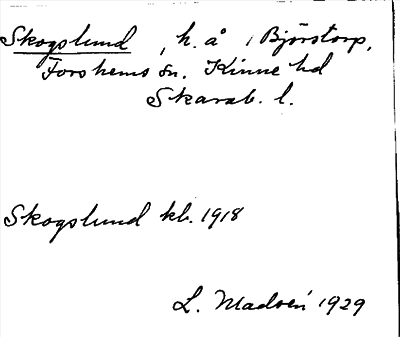 Skogslund, h. å Björstorp,
Forshems sn. Kinne hd
Skarab. l.
Skogslund kb. 1918
L. 1929